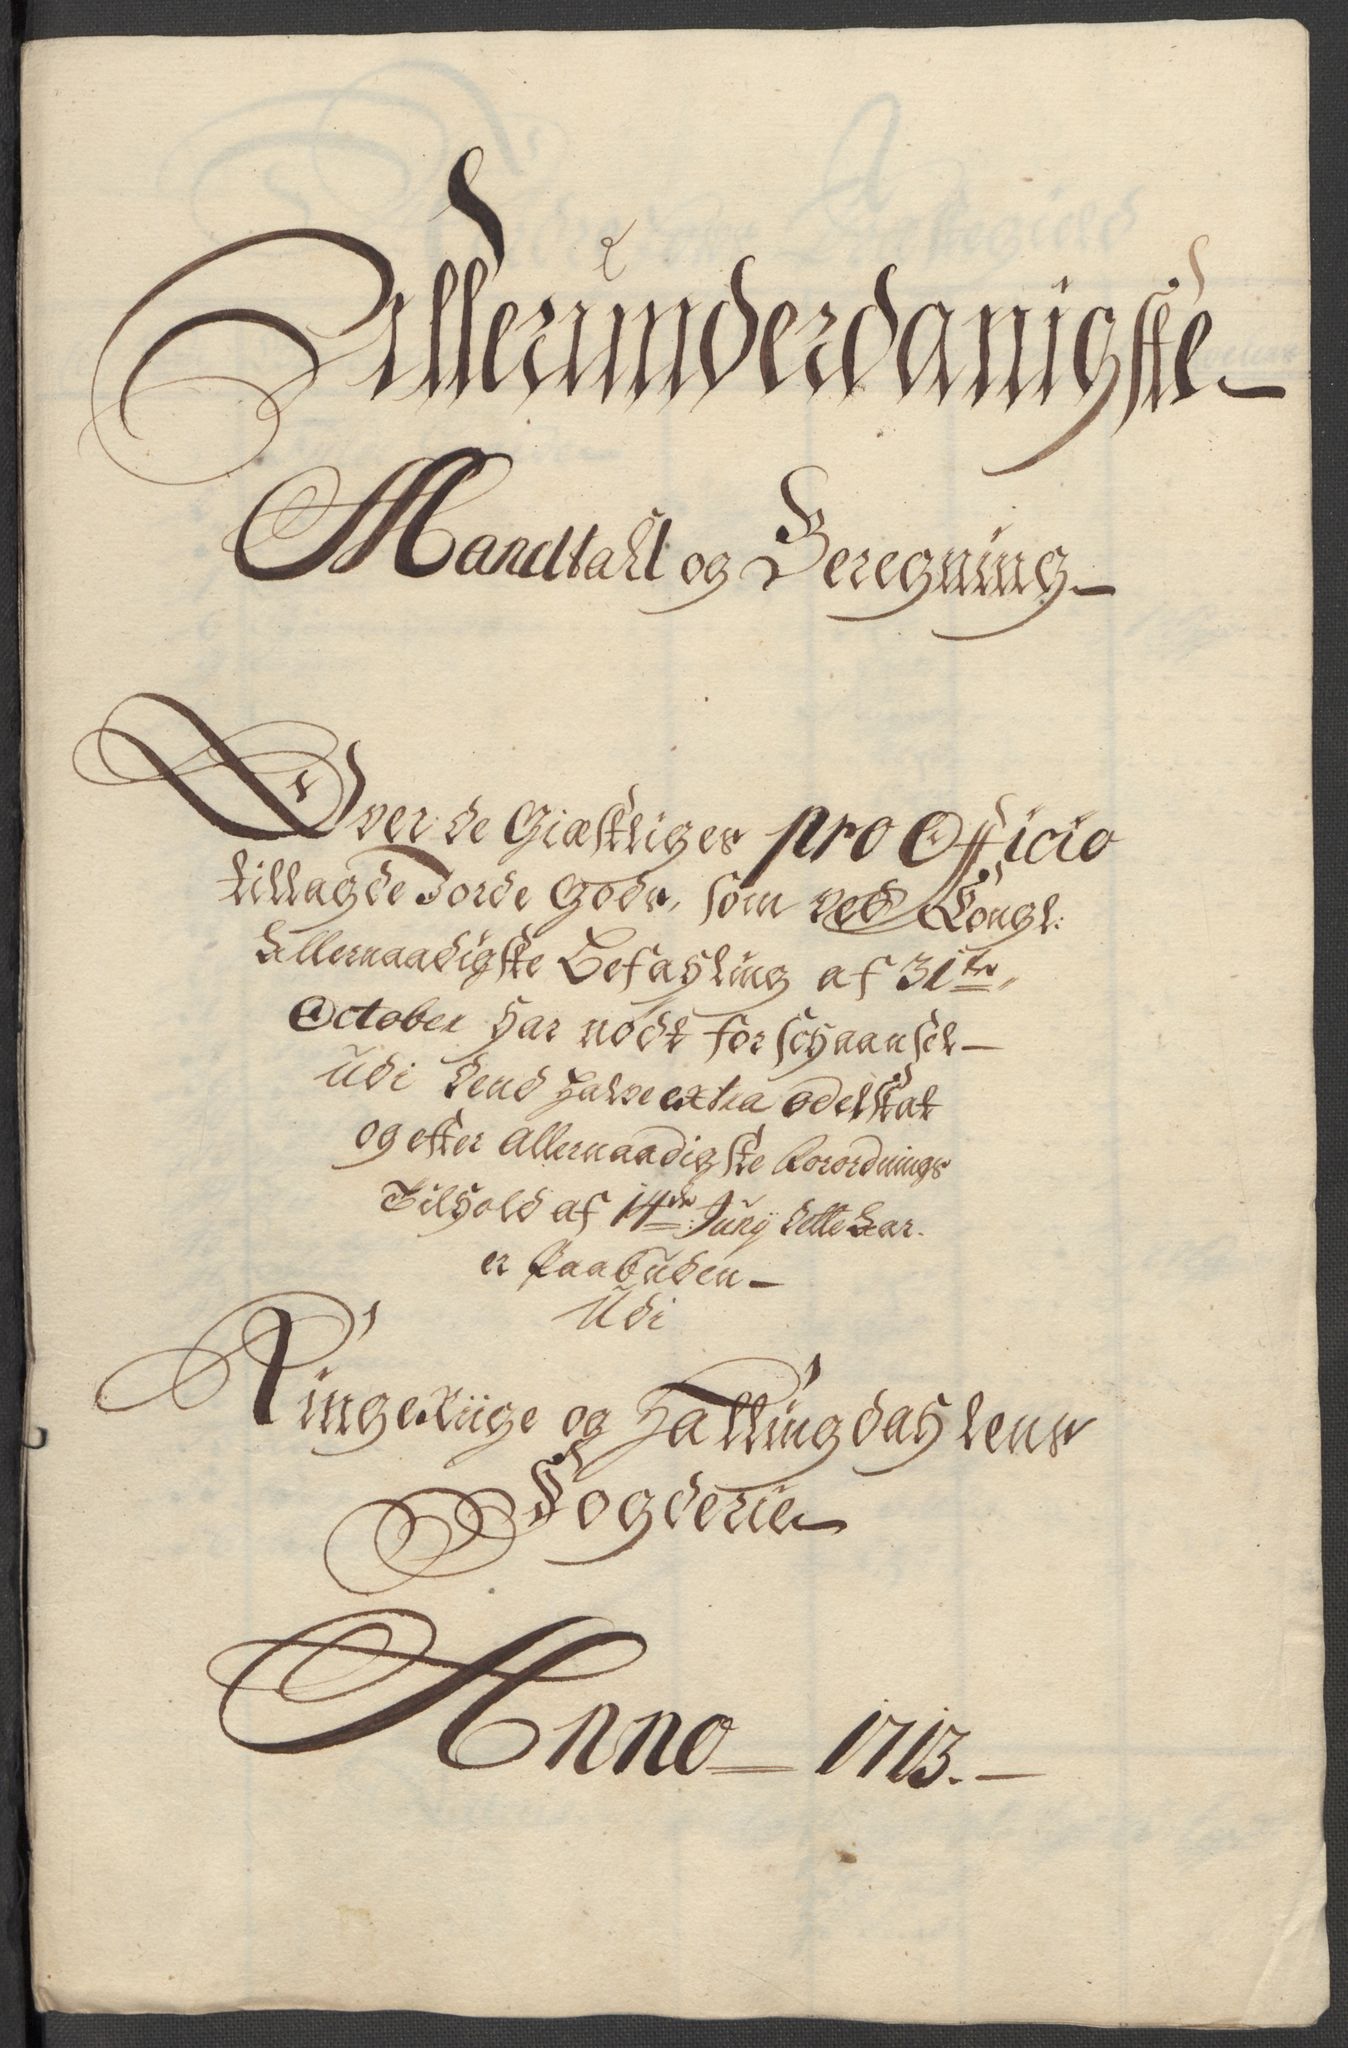 Allerunderdanigste
Mandtall og Beregning
Over de Giæstliges pro Officio
tillagde Jorde Gods, som ved Kongl:
Allernaadigste Befahling af 31te
October har nødt forschaansel
Udi dend halve extra odelskat
og efter allernaadigste Forordnings
Tilhold af 14de Junij dette Aar
er Paabuden
Udi
Ringeriige og Hallingdahlens
Fogderie
Anno 1713.